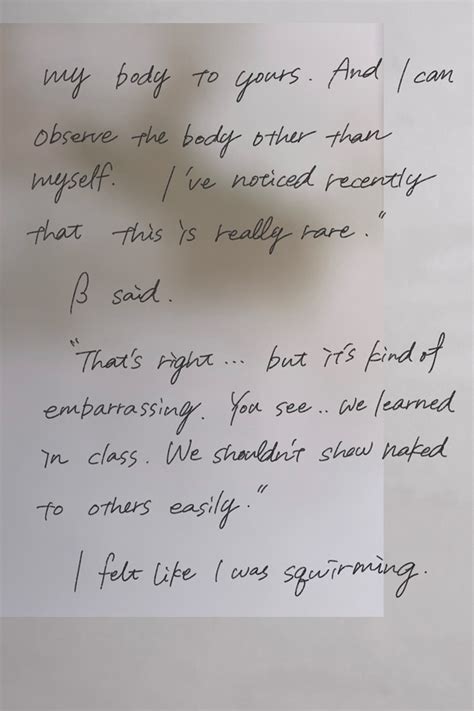 my body to yours. And I can
observe the body other than
myself. I've noticed recently
that this is really rare."
β said.
"That's right... but it's kind of
embarrassing. You see.. we learned
in class. We shouldn't show naked
to others easily."
I felt like I was squirming.